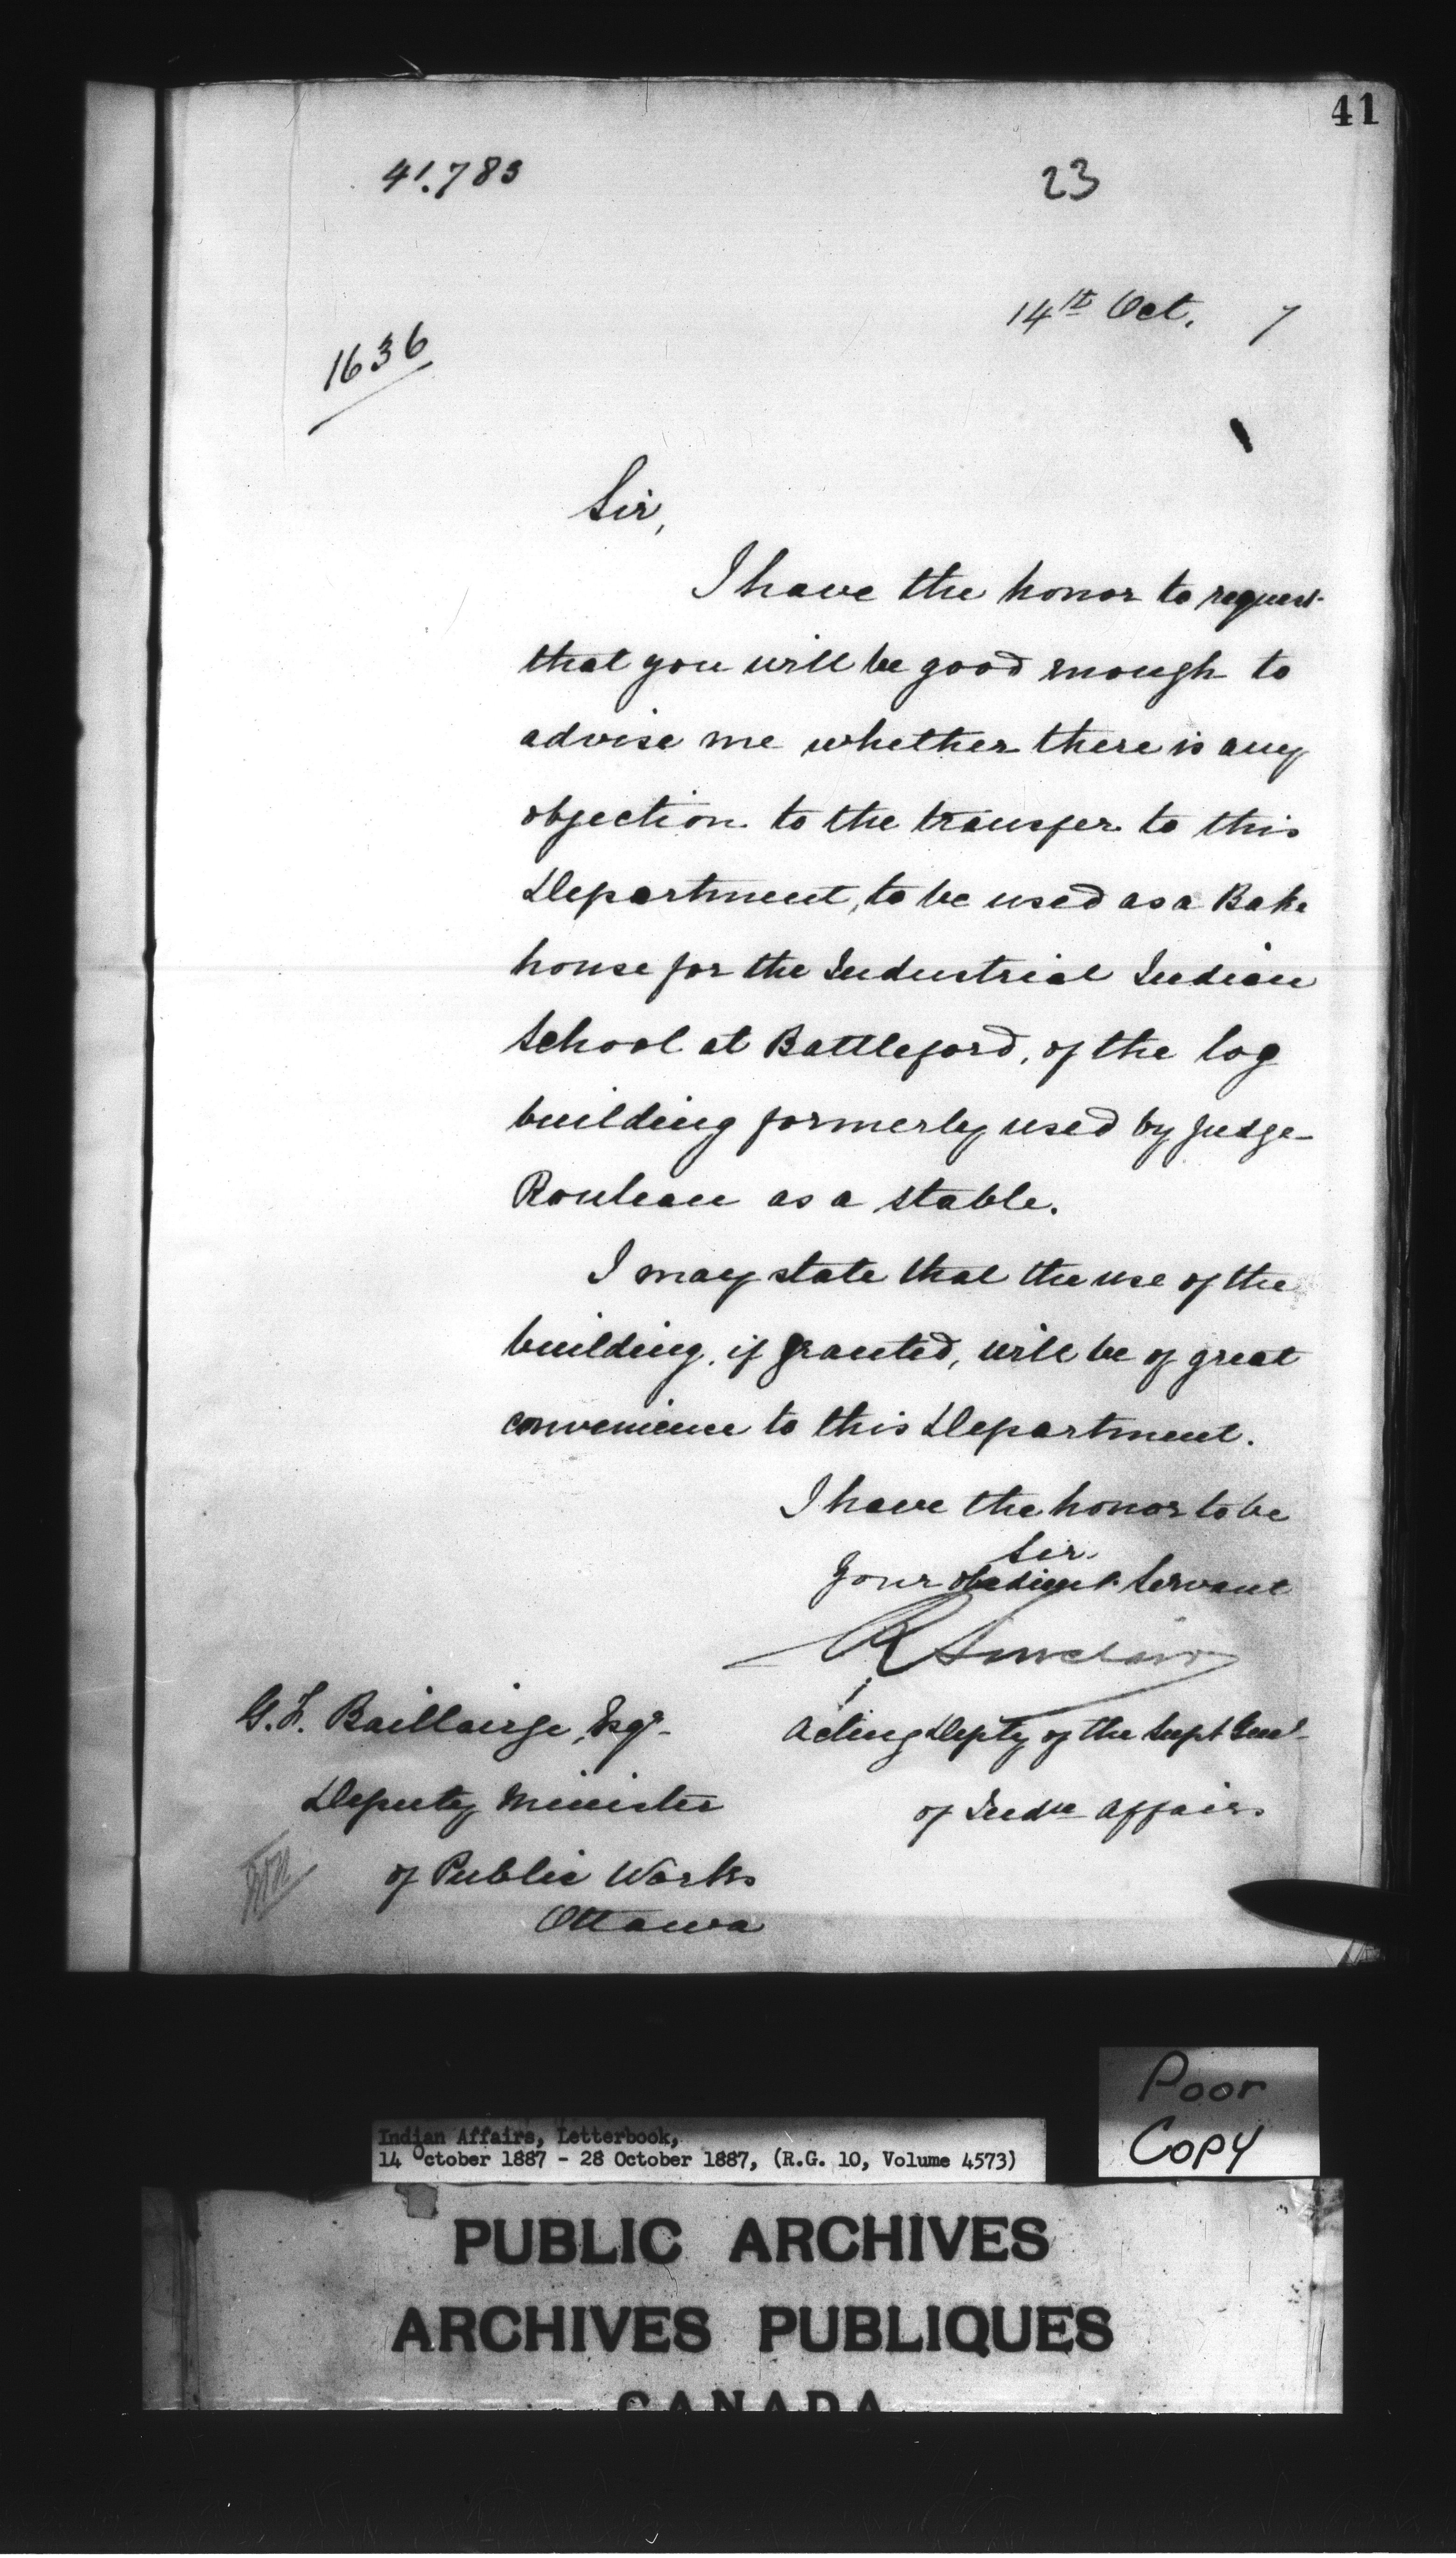 41
41.783
23
14th Oct. 7
1636
Sir,
I have the honor to request
that you will be good enough to
advise me whether there is any
objection to the transfer to this
Department, to be used as a Bake
house for the Industrial Indian
School at Battleford, of the log
building formerly used by Judge
Rouleau as a stable.
I may state that the use of the
building, if granted, will be of great
convenience to this Department.
I have the honor to be
Sir
Your obedient Servant
R Sinclair
Acting Depty of the Supt Genl
of Indn Affairs
G. F. Baillairge, Esqr
Deputy Minister
of Public Works
Ottawa
Poor
Copy
Indian Affairs, Letterbook,
14 October 1887 - 28 October 1887, (R.G. 10, Volume 4573)
PUBLIC ARCHIVES
ARCHIVES PUBLIQUES
CANADA